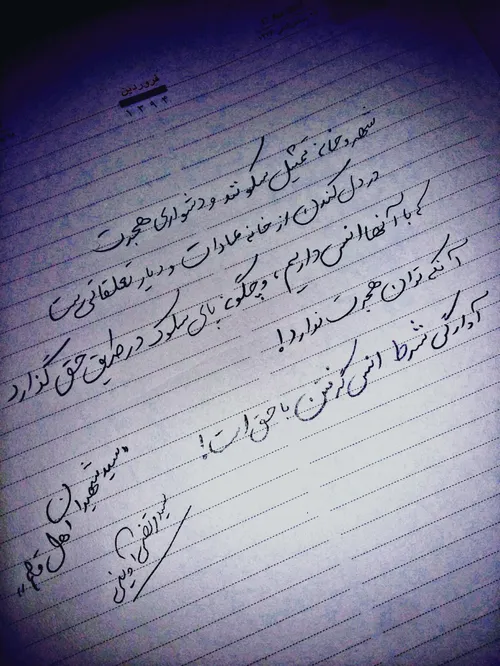 فروردین
۱۳۹۴
شهر و خانه تمثیل سکونتند و دشواری هجرت
در دل کندن از خانه عادات و دیار تعلقاتی ست
که با آنها انس داریم، و چگونه پای سلوک در طریق حق گذارد
آنکه توان هجرت ندارد!
آوارگی شرط انس گرفتن با حق است!
«سید شهیدان
اهل قلم»
سید مرتضی آوینی